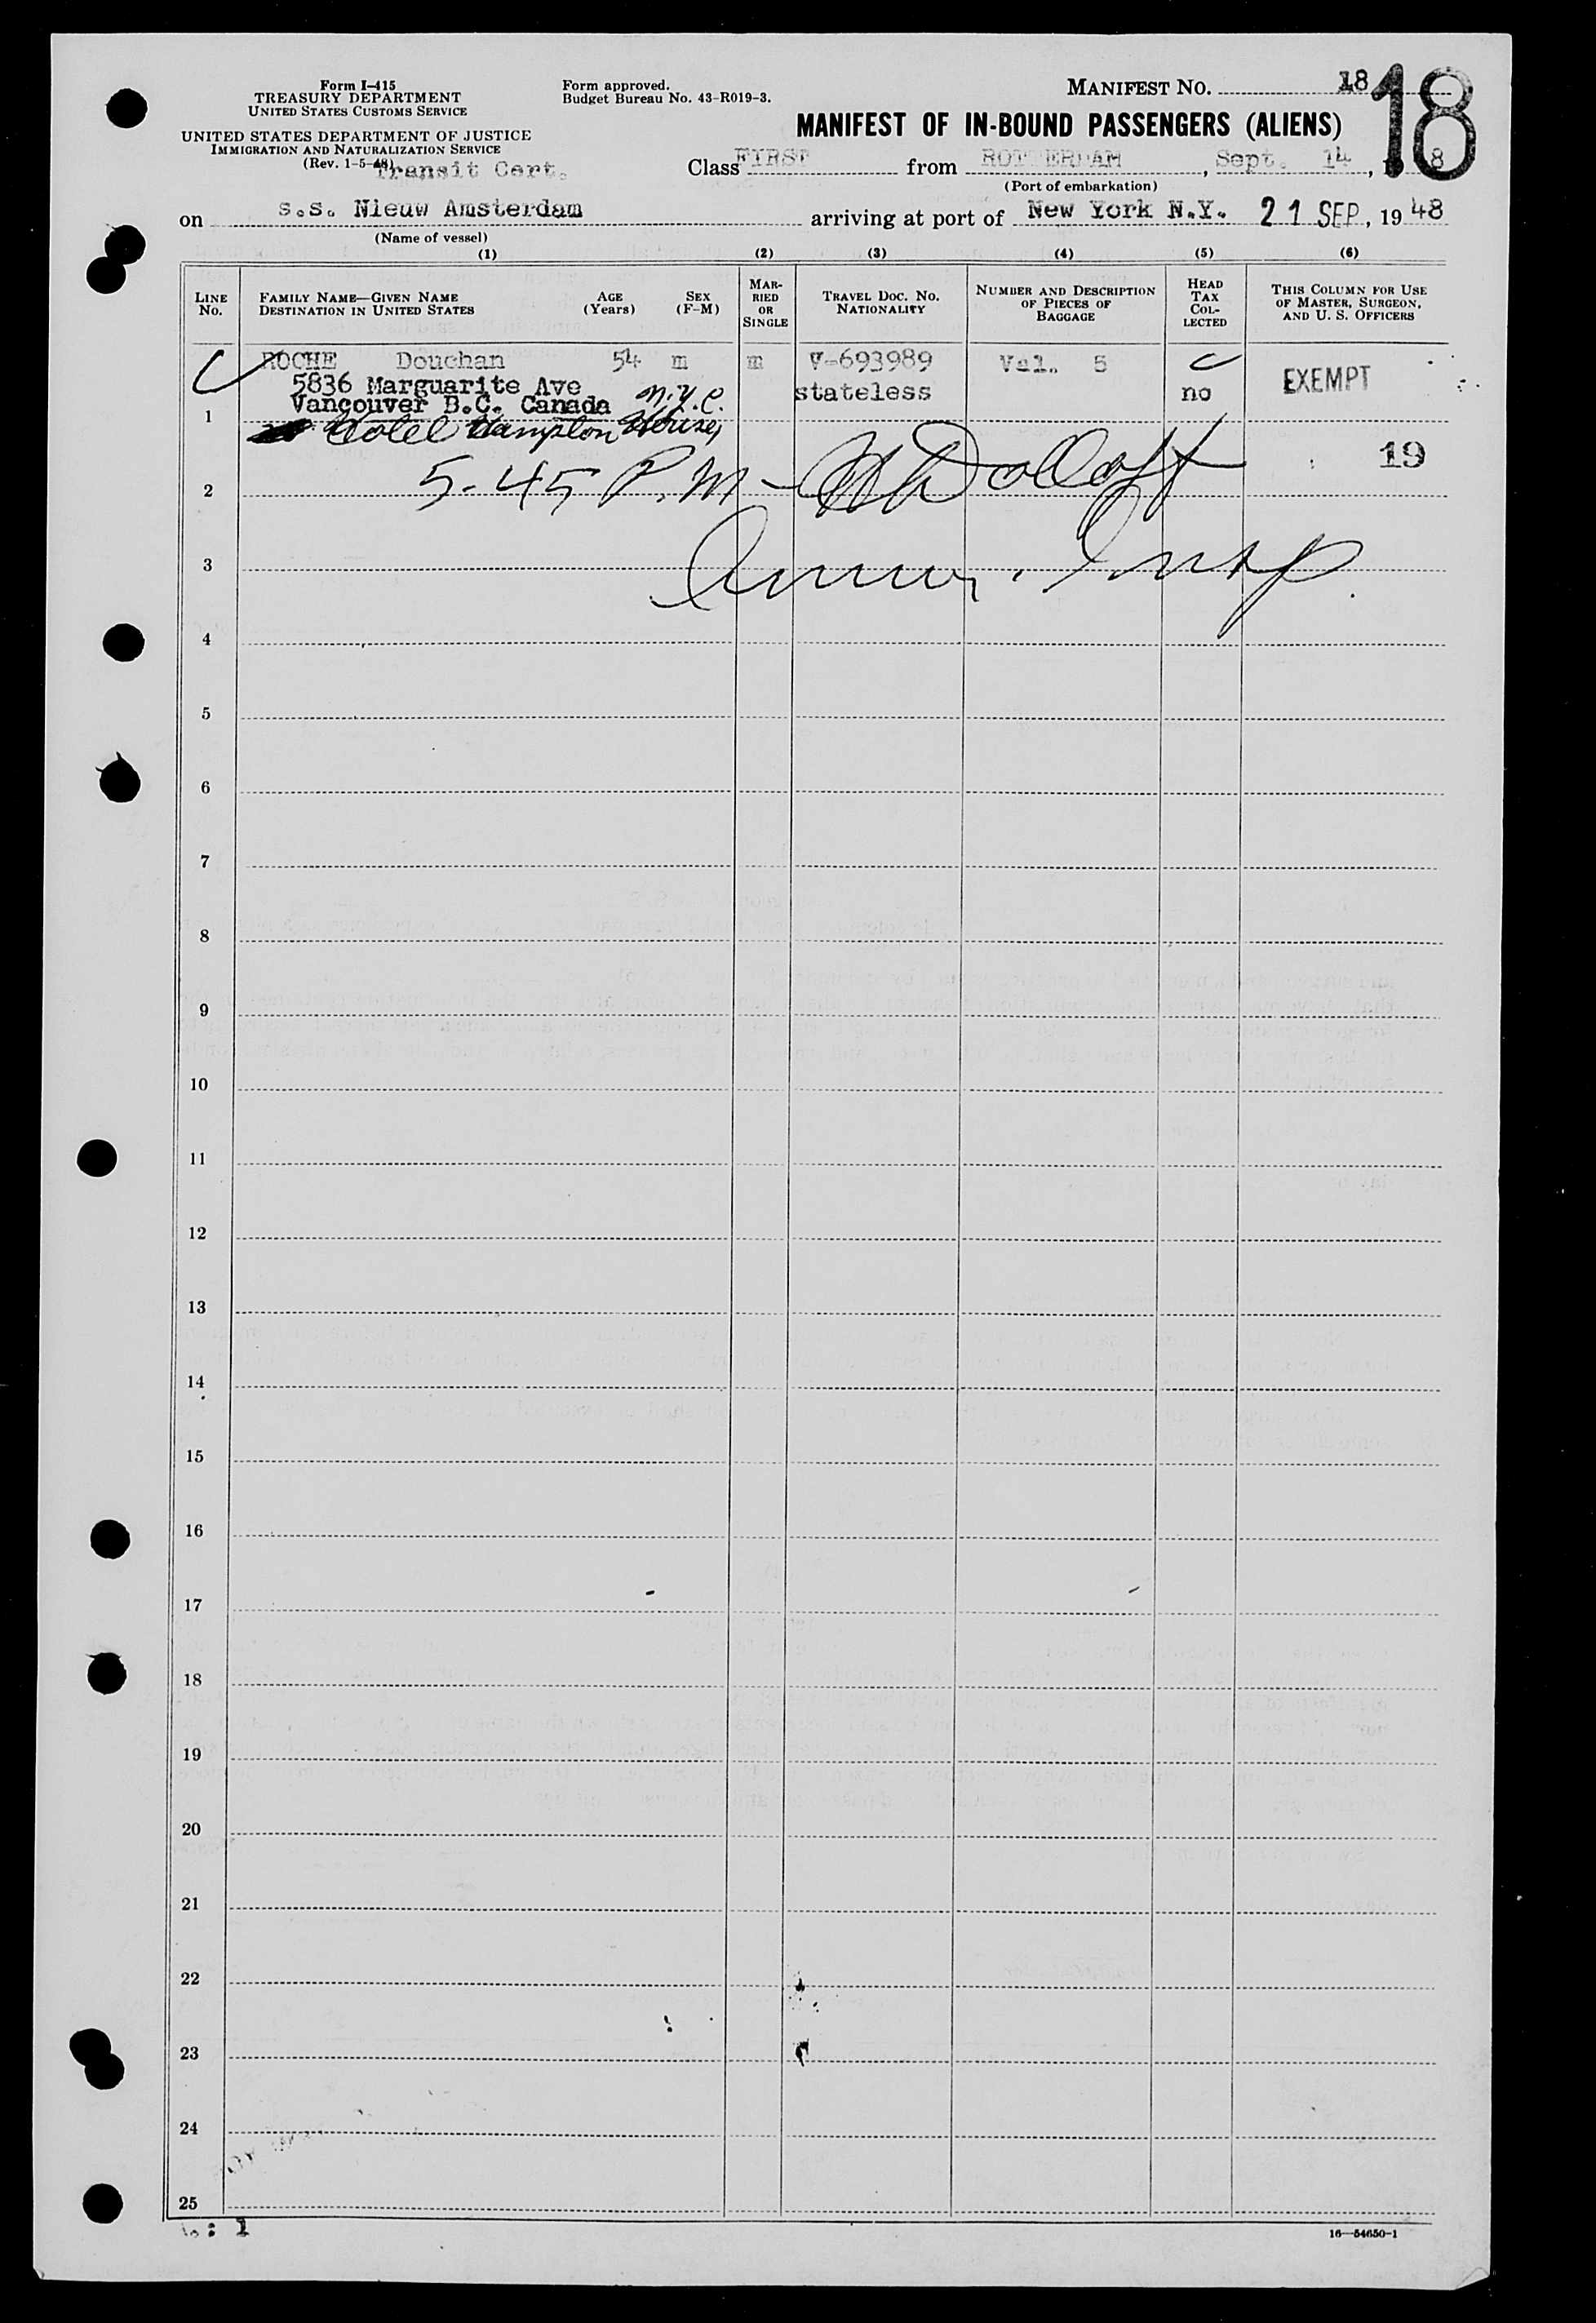 Form I-415
TREASURY DEPARTMENT
UNITED STATES CUSTOMS SERVICE
UNITED STATES DEPARTMENT OF JUSTICE
IMMIGRATION AND NATURALIZATION SERVICE
(Rev. 1-5-48)
Transit Cert.
Form approved.
Budget Bureau No. 43-R019-3.
MANIFEST NO. 18
18
MANIFEST OF IN-BOUND PASSENGERS (ALIENS)
Class FIRST from ROTTERDAM, Sept. 14, 8
(Port of embarkation)
on s.s. Nieuw Amsterdam arriving at port of New York N.Y. 21 SEP, 1948
(Name of vessel)
(1) (2) (3) (4) (5) (6)
LINE NO.
FAMILY NAME—GIVEN NAME
DESTINATION IN UNITED STATES
AGE (Years)
SEX (F-M)
MARRIED OR SINGLE
TRAVEL DOC. NO.
NATIONALITY
NUMBER AND DESCRIPTION OF PIECES OF BAGGAGE
HEAD TAX COLLECTED
THIS COLUMN FOR USE OF MASTER, SURGEON, AND U. S. OFFICERS
ROCHE Douchan 54 m m V-693989 Val. 5
5836 Marguarite Ave stateless no EXEMPT
Vancouver B.C. Canada N.Y.C.
1 Hotel Hampton House,
19
5-45 P.M -
2
3 Immig. Insp.
4
5
6
7
8
9
10
11
12
13
14
15
16
17
18
19
20
21
22
23
24
25
: 1
16—54650-1